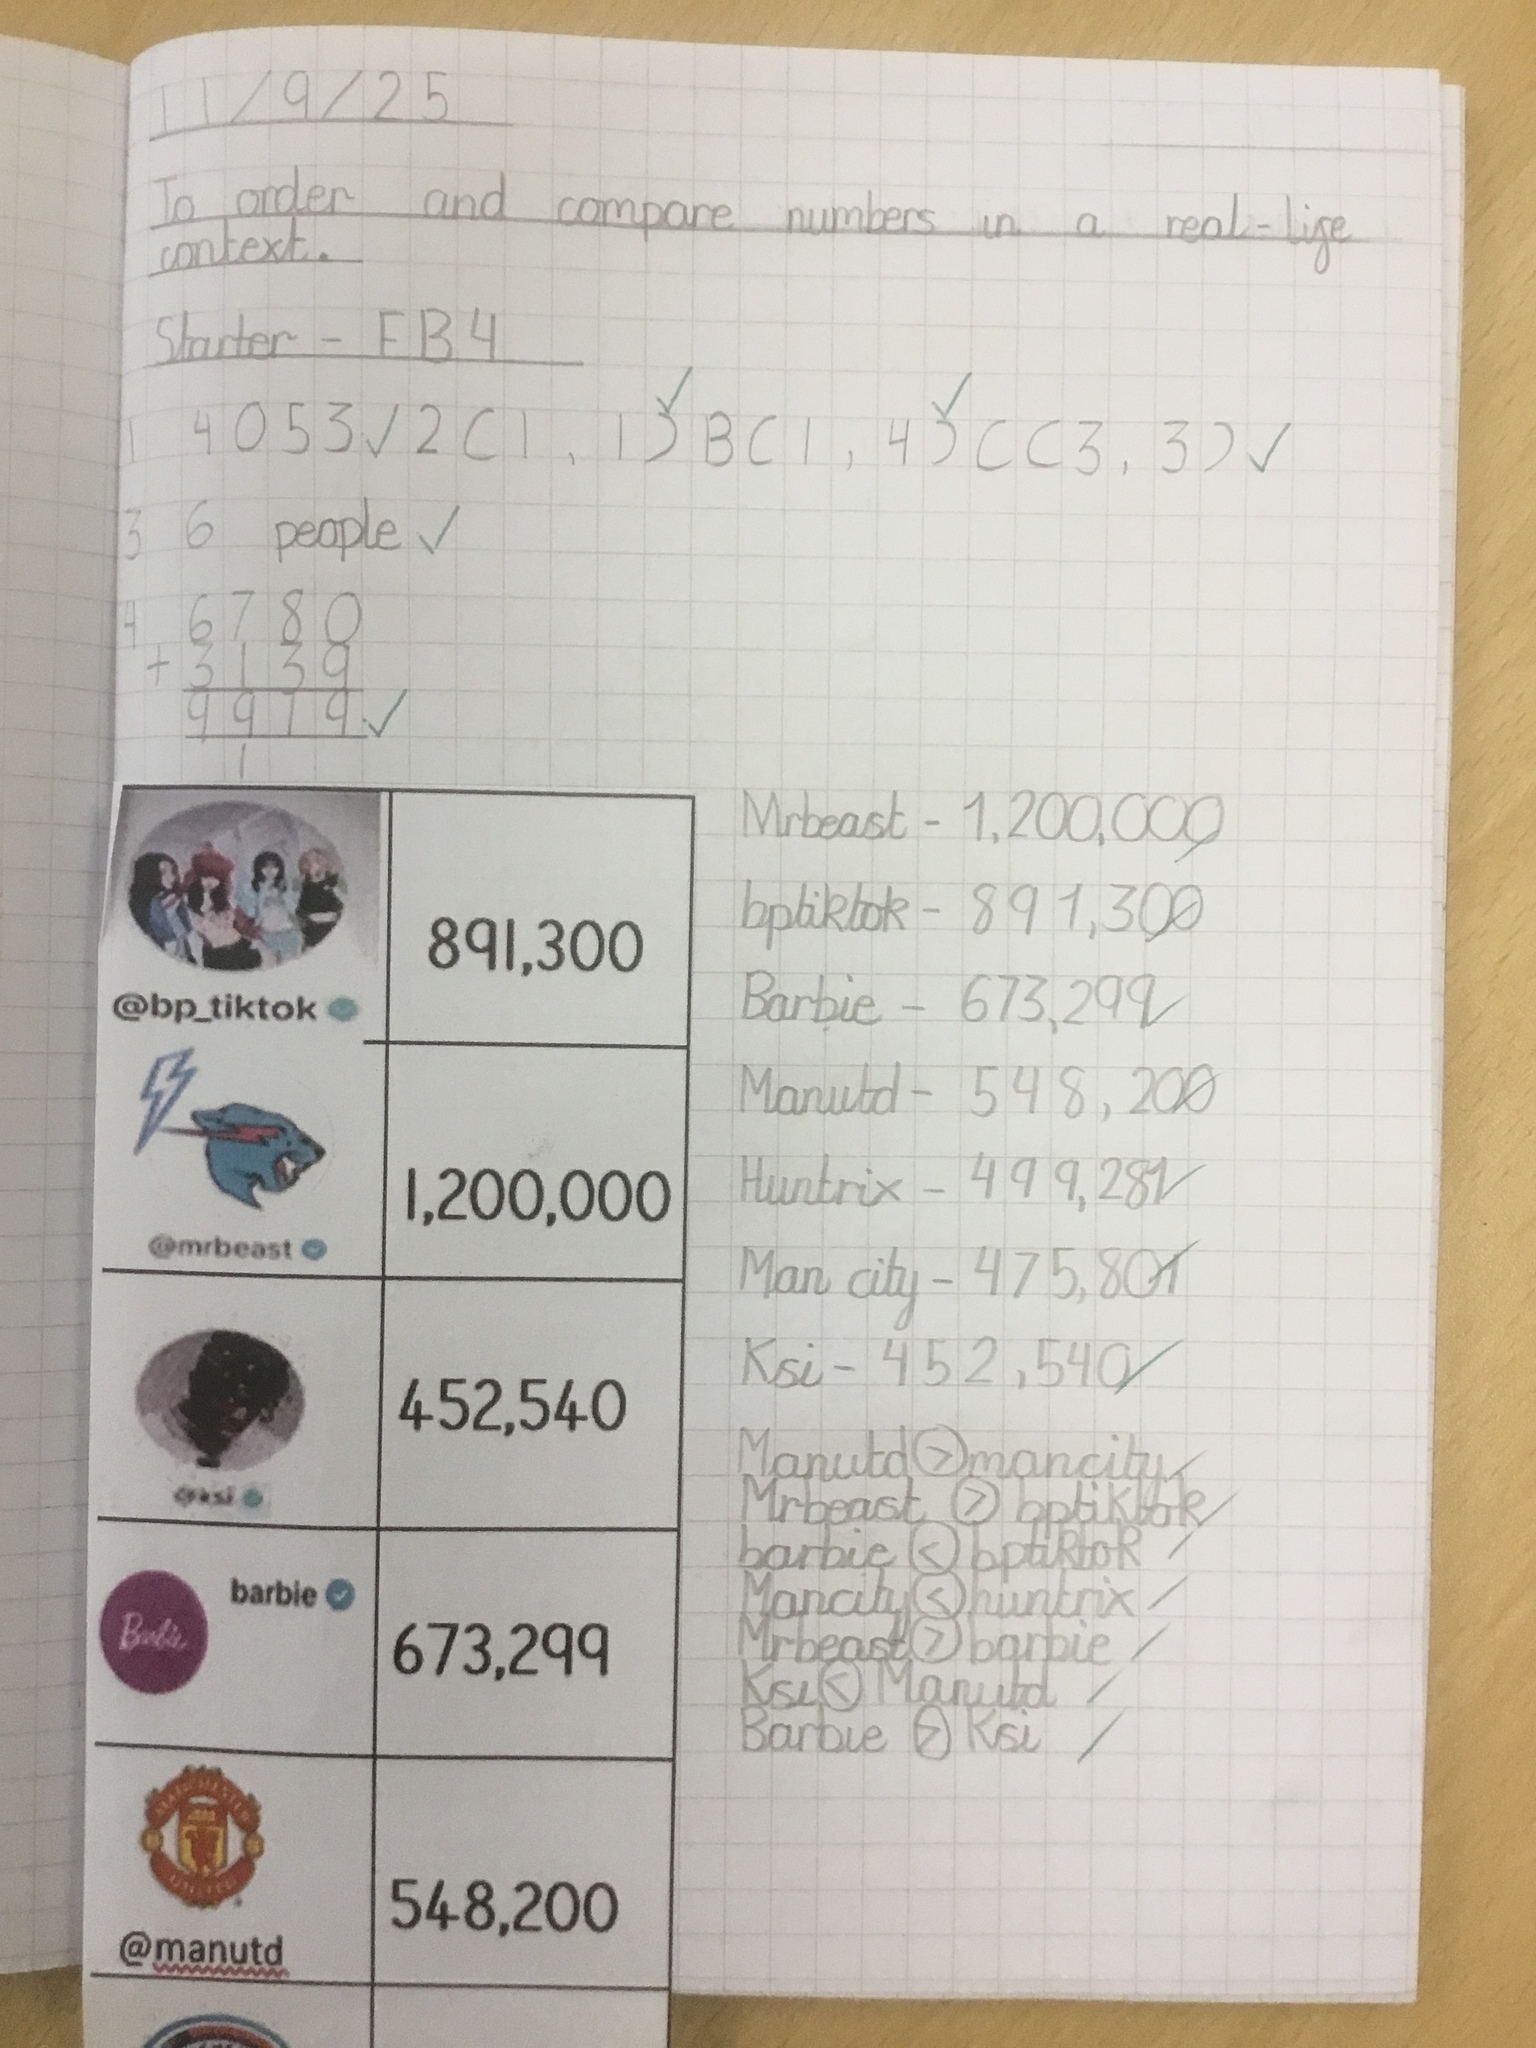 11/9/25
To order and compare numbers in a real-life
context.
Starter - FB4
1 4053✓ 2 (1, 1)✓ B(1, 4)✓ C(3, 3)✓
3 6 people ✓
4 6780
+ 3139
9919 ✓
1
891,300
@bp_tiktok
1,200,000
@mrbeast
452,540
@ksi
barbie
Barbie
673,299
MANCHESTER
UNITED
548,200
@manutd
Mrbeast - 1,200,000
bptiktok - 891,300
Barbie - 673,299
Manutd - 548,200
Huntrix - 499,281
Man city - 475,801
Ksi - 452,540
Manutd > mancity
Mrbeast > bptiktok
barbie < bptiktok
Mancity < huntrix
Mrbeast > barbie
Ksi < Manutd
Barbie > Ksi